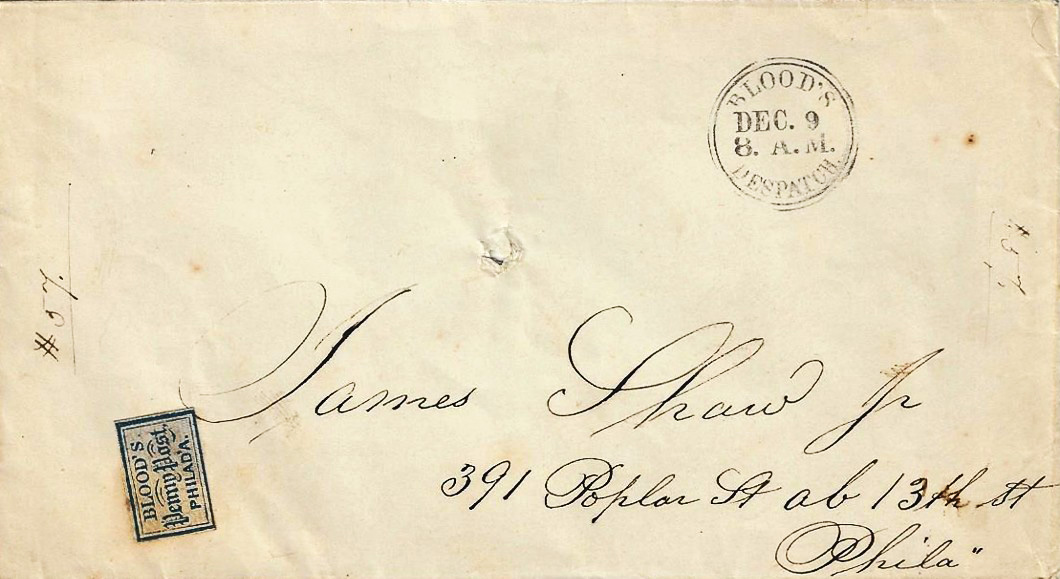 BLOOD'S
DEC. 9
8. A.M.
DESPATCH
James Shaw Jr
391 Poplar St ab 13th st
Phila"
BLOOD'S
Penny Post,
PHILAD'A.